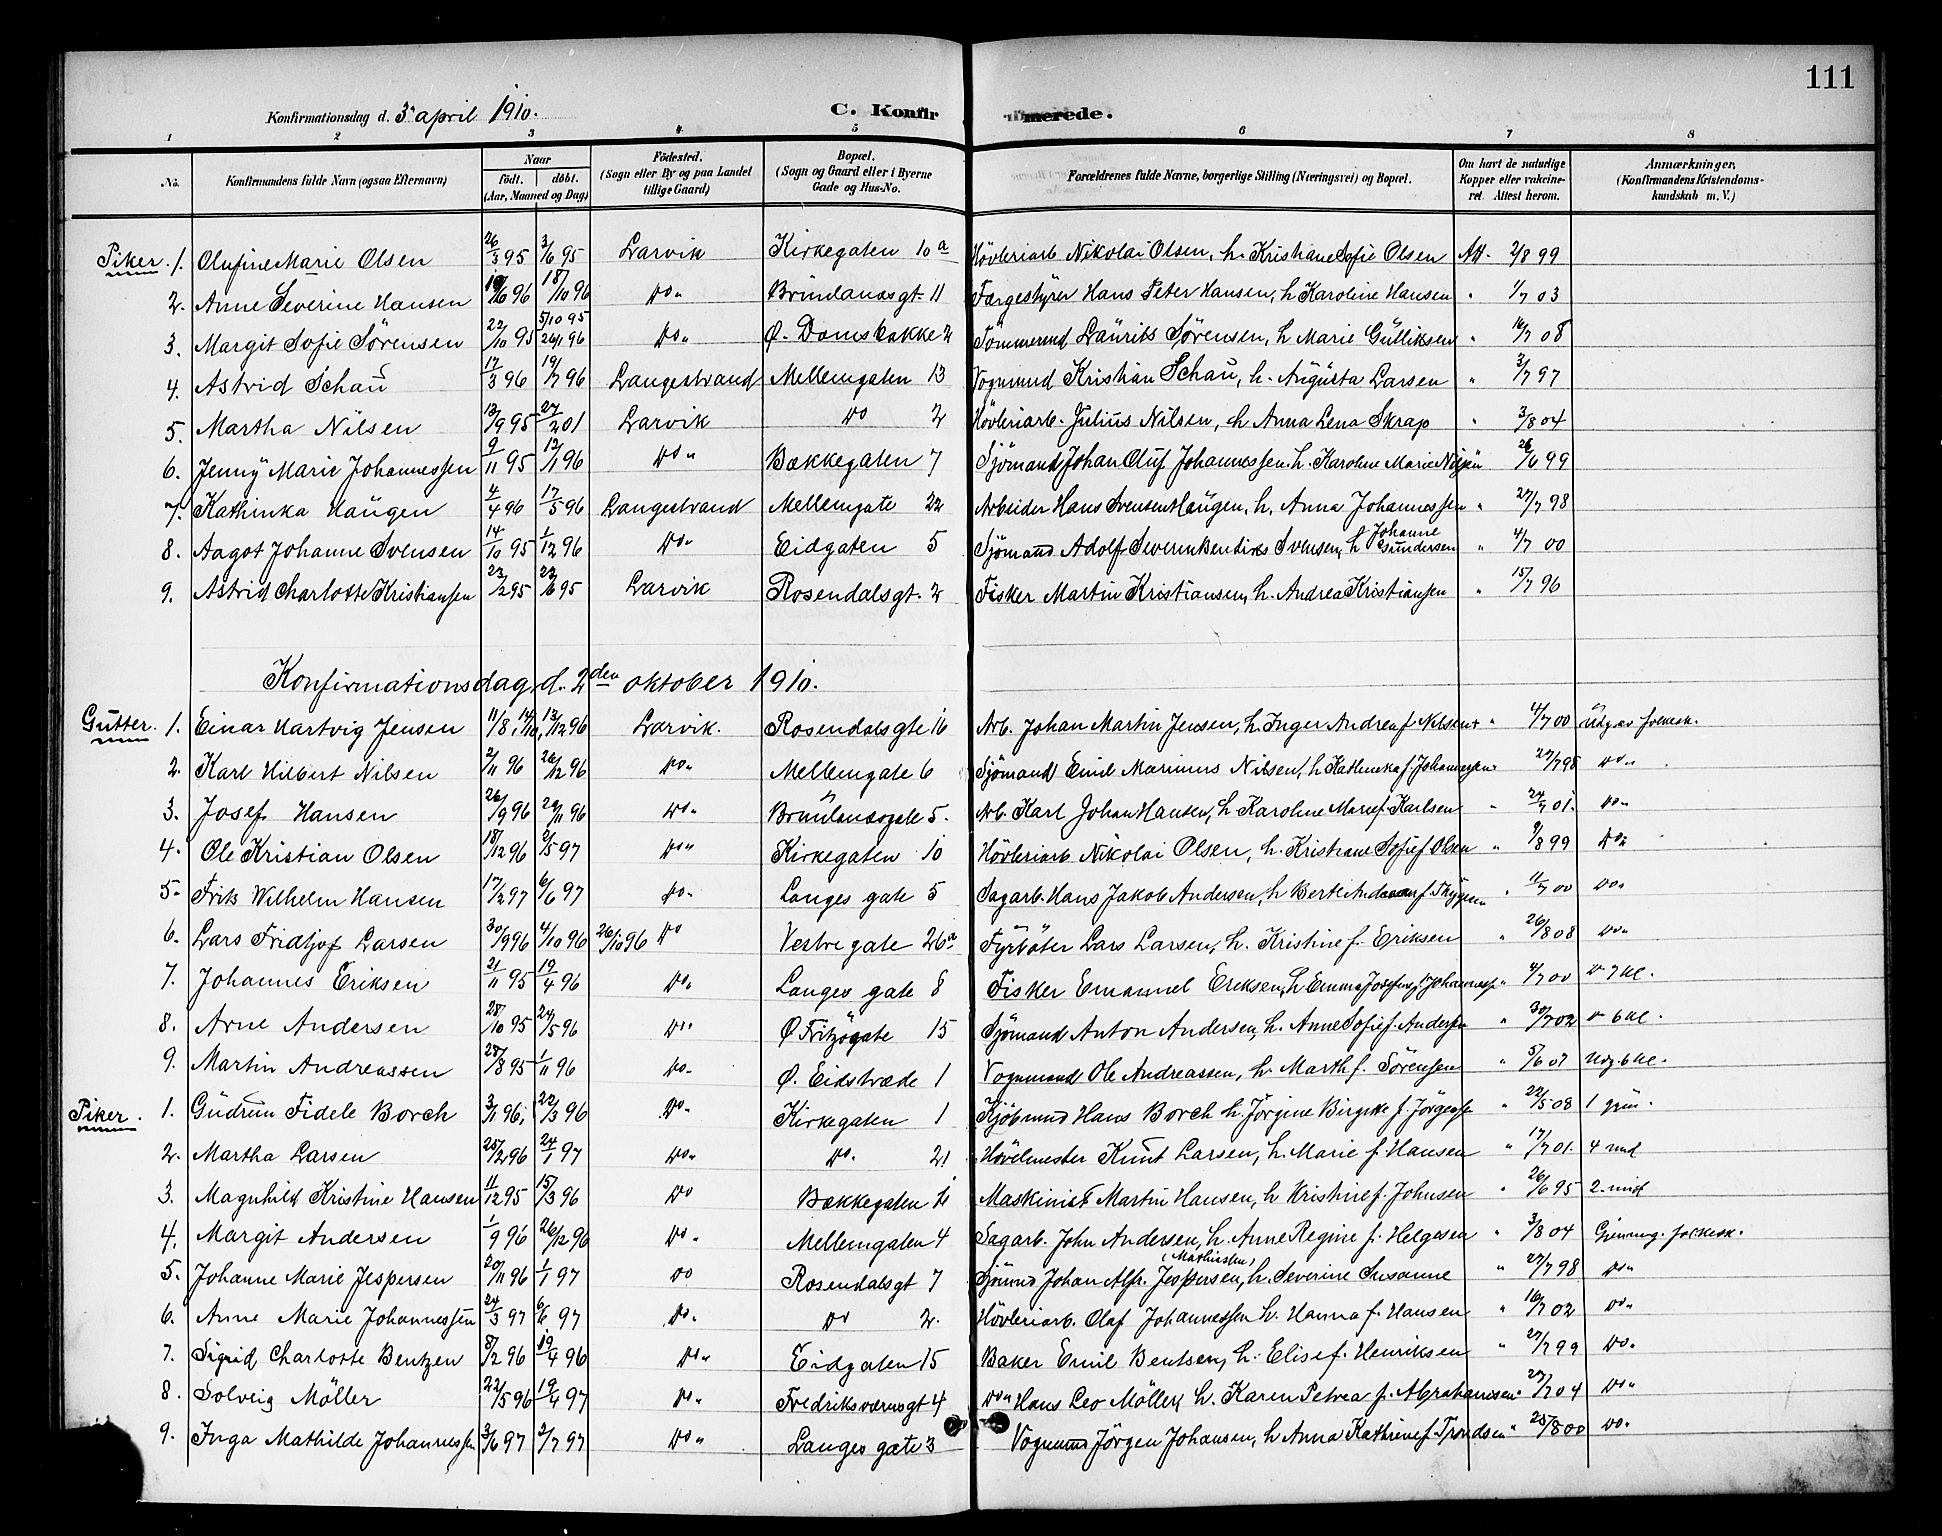 111
Konfirmationsdag d. 3. april 1910. C. Konfirmerede.
1 2 3 4 5 6 7 8
No. Konfirmandens fulde Navn (ogsaa Efternavn) Naar født. døbt. (Aar, Maaned og Dag) Fødested. (Sogn eller By og paa Landet tillige Gaard) Bopæl. (Sogn og Gaard eller i Byerne Gade og Hus-No. Forældrenes fulde Navne, borgerlige Stilling (Næringsvei) og Bopæl. Om havt de naturlige Kopper eller vakcineret. Attest herom. Anmærkninger. (Konfirmandens Kristendomskundskab m. V.)
Piker. 1. Olufine Marie Olsen 26/3 95 3/6 95 Larvik Kirkegaten 10a Høvleriarb. Nikolai Olsen, h. Kristiane Sofie Olsen Att. 2/8 99
2. Anne Severine Hansen 96 18/10 96 Do. Brunlanæsgt. 11 Færgestyrer Hans Peter Hansen, h. Karoline Hansen " 1/7 03
3. Margit Sofie Sørensen 22/10 95 5/10 95 26/1 96 Do. Ø. Damsbakke 2 Tømmermd Laurits Sørensen, h. Marie Gulliksen " 16/7 08
4. Astrid Schau 17/3 96 19/7 96 Langestrand Mellemgaten 13 Vognmnd Kristian Schau, h. Augusta Larsen " 3/7 97
5. Martha Nilsen 13/9 95 27/2 01 Larvik Do 2 Høvleriarb. Julius Nilsen, h. Anna Lena Skrap " 3/8 04
6. Jenny Marie Johannessen 9/11 95 12/1 96 Do " Bækkegaten 7 Sjømand Johan Oluf Johannessen. h. Karoline Marie Nilsen " 26/6 99
7. Kathinka Haugen 4/4 96 17/5 96 Langestrand Mellemgate 22 Arbeider Hans Svensen Haugen, h. Anna Johannessen " 27/7 98
8. Aagot Johanne Svensen 14/10 95 1/12 96 Do. Eidgaten 5 Sjømand Adolf Severin Bendixs Svensen, h. Johanne Gundersen " 4/7 00
9. Astrid Charlotte Kristiansen 22/2 95 23/6 95 Larvik Rosendalsgt. 2 Fisker Martin Kristiansen, h. Andrea Kristiansen " 15/7 96
Konfirmationsdag, d. 2den oktober 1910.
Gutter. 1. Einar Hartvig Jensen 11/8, 14/10, 13/12 96 Larvik. Rosendalsgte 16 Arb. Johan Martin Jensen, h. Inger Andrea f. Nilsen " 4/7 00 Udg. av folkesk.
2. Karl Hilbert Nilsen 2/11 96 26/12 96 Do. Mellemgate 6 Sjømand Emil Marinus Nilsen, h. Kathinka f. Johannessen " 27/7 98 Do.
3. Josef Hansen 26/9 96 29/11 96 Do. Brunlanæsgate 5. Arb. Karl Johan Hansen, h. Karoline Marie f. Karlsen " 24/7 01. Do.
4. Ole Kristian Olsen 18/12 96 2/5 97 Do. Kirkegaten 10 Høvleriarb. Nikolai Olsen, h. Kristiane Sofie f. Olsen " 9/8 99 Do.
5. Frits Wilhelm Hansen 17/2 97 6/6 97 Do. Langes gate 5 Sagarb. Hans Jakob Andersen, h. Berte Andersen f. Thygesen " 11/7 00 Do.
6. Lars Fridtjof Larsen 30/9 96 4/10 96 26/10 96 Do Vestregate 26a Fyrbøter Lars Larsen, h. Kristine f. Eriksen " 26/8 08 Do.
7. Johannes Eriksen 21/11 95 19/4 96 Do. Langes gate 8 Fisker Emanuel Eriksen, h. Emma Josefine f. Johanness. " 4/7 00 D 7 kl.
8. Arne Andersen 28/10 95 24/5 96 Do. Ø Fritzøgate 15 Sjømand Anton Andersen, h. Anne Sofie f. Andersen " 30/7 02 D 6 kl.
9. Martin Andreassen 28/8 95 1/11 96 Do. Ø. Eidstræde 1 Vognmand Ole Andreassen, h. Marth f. Sørensen " 5/6 07 Udg. 6 kl.
Piker. 1. Gudrun Fidele Borch 3/1 96, 22/3 96 Do. Kirkegaten 1 Kjøbmnd Hans Borch h. Jørgine Birgitte f. Jørgensen " 22/5 08 1 gim.
2. Martha Larsen 25/2 96 24/1 97 Do. Do. 21 Høvelmester Knut Larsen, h. Marie f. Hansen " 17/7 01. 4 mid
3. Magnhild Kristine Hansen 11/12 95 15/3 96 Do Bækkegaten Maskinist Martin Hansen, h. Kristine f. Johnsen " 26/6 95 2. mid
4. Margit Andersen 1/9 96 26/12 96 Do. Mellemgaten 4 Sagarb. John Andersen, h. Anne Regine f. Helgesen " 3/8 04 Gjennemg. folkesk.
5. Johanne Marie Jespersen 20/11 96 1/1 97 Do Rosendalsgt 7 Sjømnd Johan Alfr. Jespersen, h. Severine Susanne (Mathisden) " 27/7 98 Do.
6. Anne Marie Johannessen 24/3 97 6/6 97 Do. Do 2. Høvleriarb. Olaf Johannessen h. Hanna f. Hansen " 16/7 02 Do.
7. Sigrid Charlotte Bentzen 8/2 96 19/4 96 Do. Eidgaten 15 Baker Emil Bentsen, h. Elise f. Henriksen " 27/7 99 Do.
8. Solveig Møller 22/5 96 19/4 97 Do. Fredriksværnsgt 4 Do. Hans Leo Møller, h. Karen Petrea f. Abrahamsen " 27/7 04 Do.
9. Inga Mathilde Johannessen 3/6 97 2/7 97 Do. Langes gate 3 Vognmnd Jørgen Johansen, h. Anna Kathrine f. Trondsen " 25/8 00 Do.